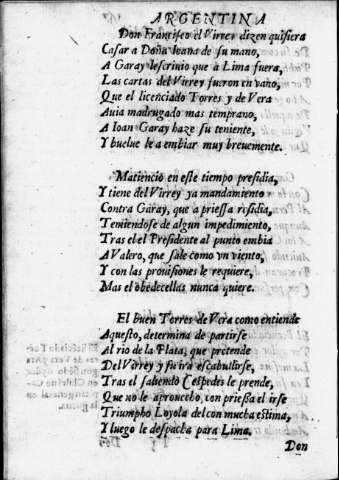 ARGENTINA
Don Francisco el Virrey dizen quisiera
Casar a Doña Ioana de su mano,
A Garay lescriuio que à Lima fuera,
Las cartas del Virrey fueron en vano,
Que el licenciado Torres y de Vera
Auia madrugado mas temprano,
A Ioan Garay haze su teniente,
Y buelue le a embiar muy breuemente.
Matiencio en este tiempo presidia,
Y tiene del Virrey ya mandamiento
Contra Garay, que a priessa
Temiendose de algun impedimiento,
Tras el el Presidente al punto embia
A Valero, que sale como vn viento,
Y con las prouisiones le requiere,
Mas el obedecellas nunca quiere.
El buen Torres de Vera como entiende
Aquesto, determina de partirse
Al rio de la Plata, que pretende
Del Virrey y su ira escabullirse,
Tras el saliendo Cespedes le prende,
Que no le aprouecho, con priessa el irse
Triumpho Loyola del con mucha estima,
Y luego le despacha para Lima.
Don